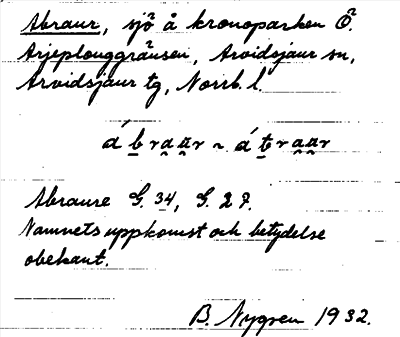 Abraur, sjö å kronoparken Ö.
Arjeplouggränsen, Arvidsjaur sn,
Arvidsjaur tg, Norrb. l.
á b̠ r a̯ a̯ r ~ á t̠ r a̯ a̯ r
Abraure G. 34, G. 27.
Namnets uppkomst och betydelse
obekant.
B. Nygren 1932.